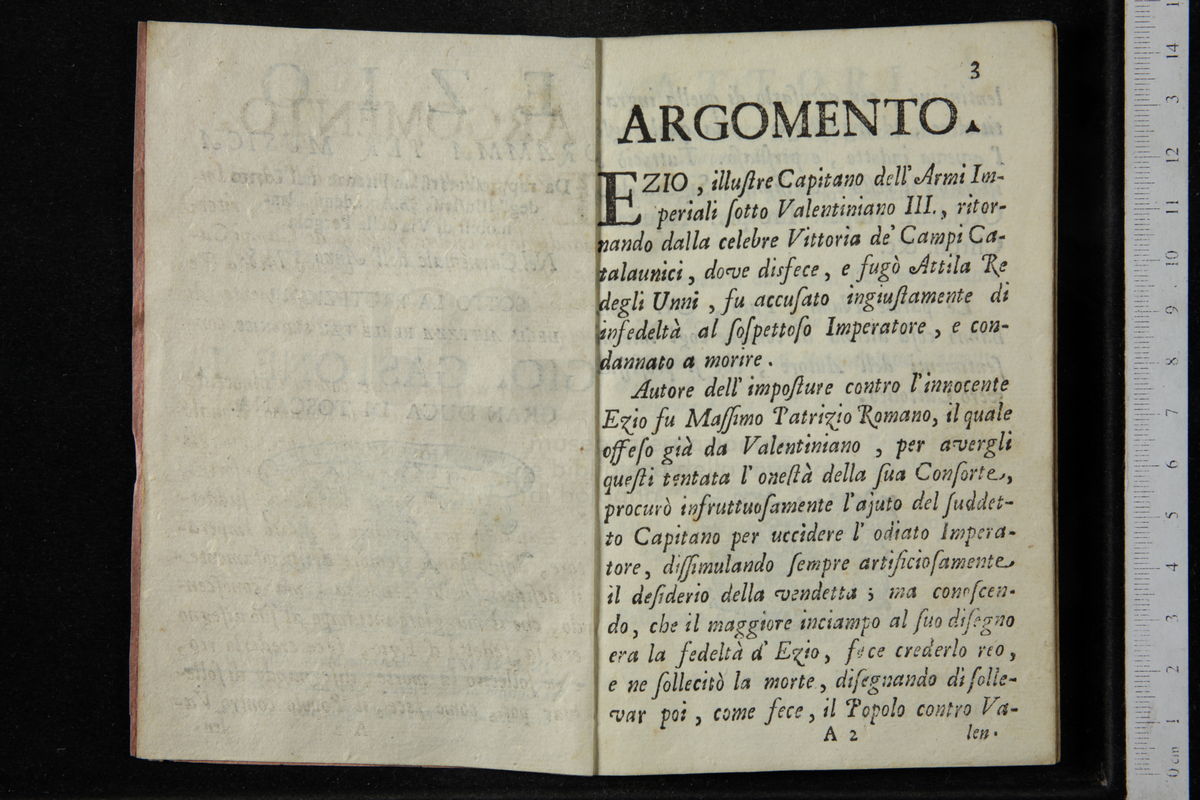 3
ARGOMENTO.
EZIO, illuſtre Capitano dell' Armi Im-
periali ſotto Valentiniano III., ritor-
nando dalla celebre Vittoria de' Campi Ca-
talaunici, dove disfece, e fugò Attila Re
degli Unni, fu accuſato ingiuſtamente di
infedeltà al ſoſpettoſo Imperatore, e con-
dannato a morire.
Autore dell' impoſture contro l'innocente
Ezio fu Maſſimo Patrizio Romano, il quale
offeſo già da Valentiniano, per avergli
queſti tentata l'oneſtà della ſua Conſorte,
procurò infruttuoſamente l'ajuto del ſuddet-
to Capitano per uccidere l' odiato Impera-
tore, diſſimulando ſempre artificioſamente
il deſiderio della vendetta; ma conoſcen-
do, che il maggiore inciampo al ſuo diſegno
era la fedeltà d' Ezio, fece crederlo reo,
e ne ſollecitò la morte, diſegnando di ſolle-
var poi, come fece, il Popolo contro Va-
A 2 len.